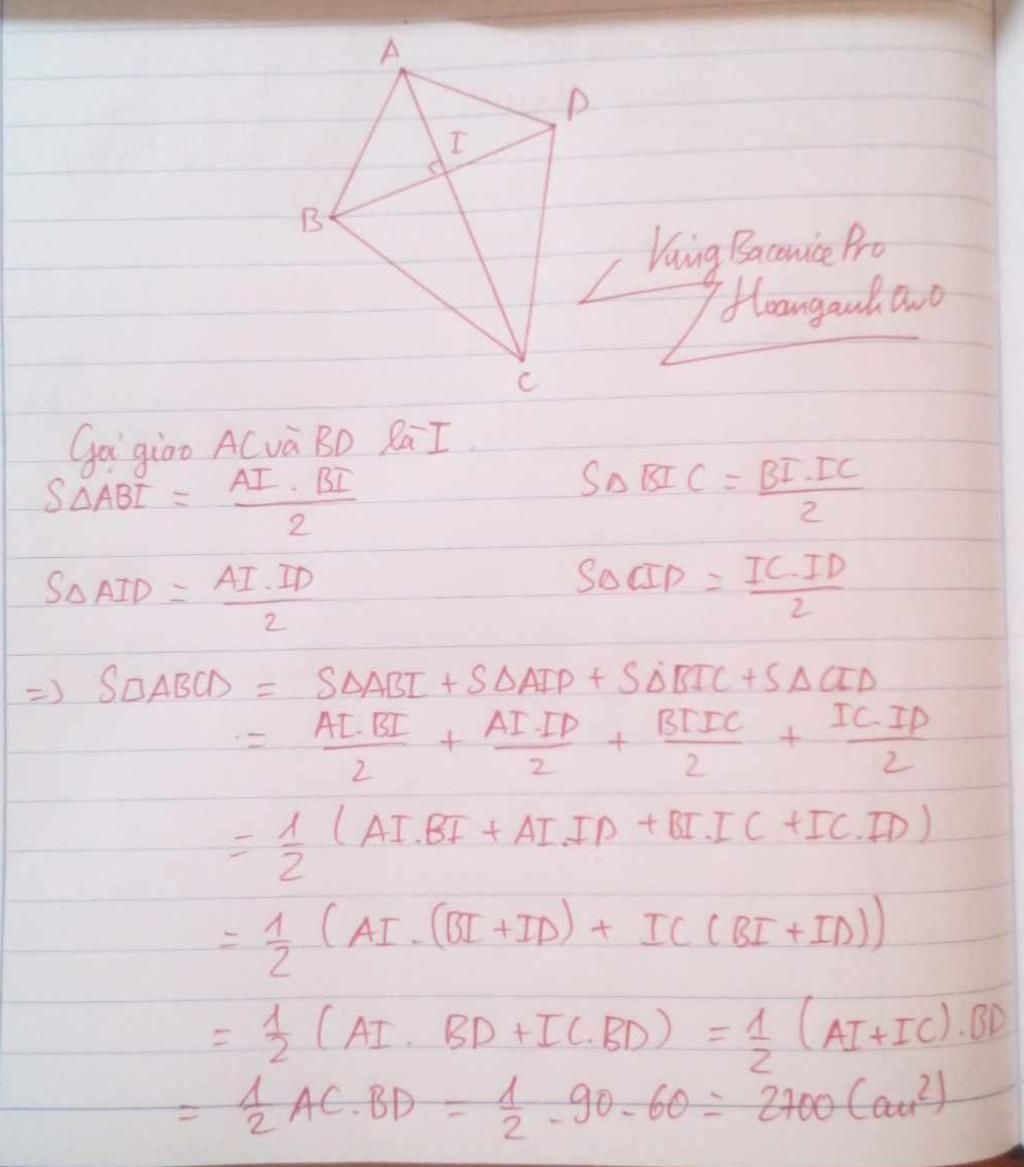 A
D
I
B
C
Vùng Baconice Pro
Hoanganh OwO
Gọi giao AC và BD là I
SΔABI = AI . BI / 2
SΔBIC = BI.IC / 2
SΔAID = AI.ID / 2
SΔCID = IC.ID / 2
=> S□ABCD = SΔABI + SΔAID + SΔBIC + SΔCID
= AI.BI / 2 + AI.ID / 2 + BI.IC / 2 + IC.ID / 2
= 1/2 (AI.BI + AI.ID + BI.IC + IC.ID)
= 1/2 (AI.(BI + ID) + IC (BI + ID))
= 1/2 (AI. BD + IC.BD) = 1/2 (AI + IC).BD
= 1/2 AC.BD = 1/2 . 90 . 60 = 2700 (cm²)